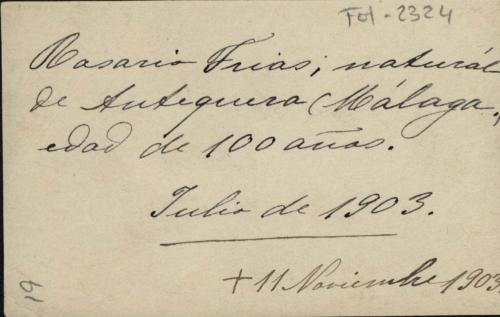 Fot-2324
Rosario Frias; natural
de Antequera (Málaga,
edad de 100 años.
Julio de 1903.
+ 11 Noviembre 1903
19